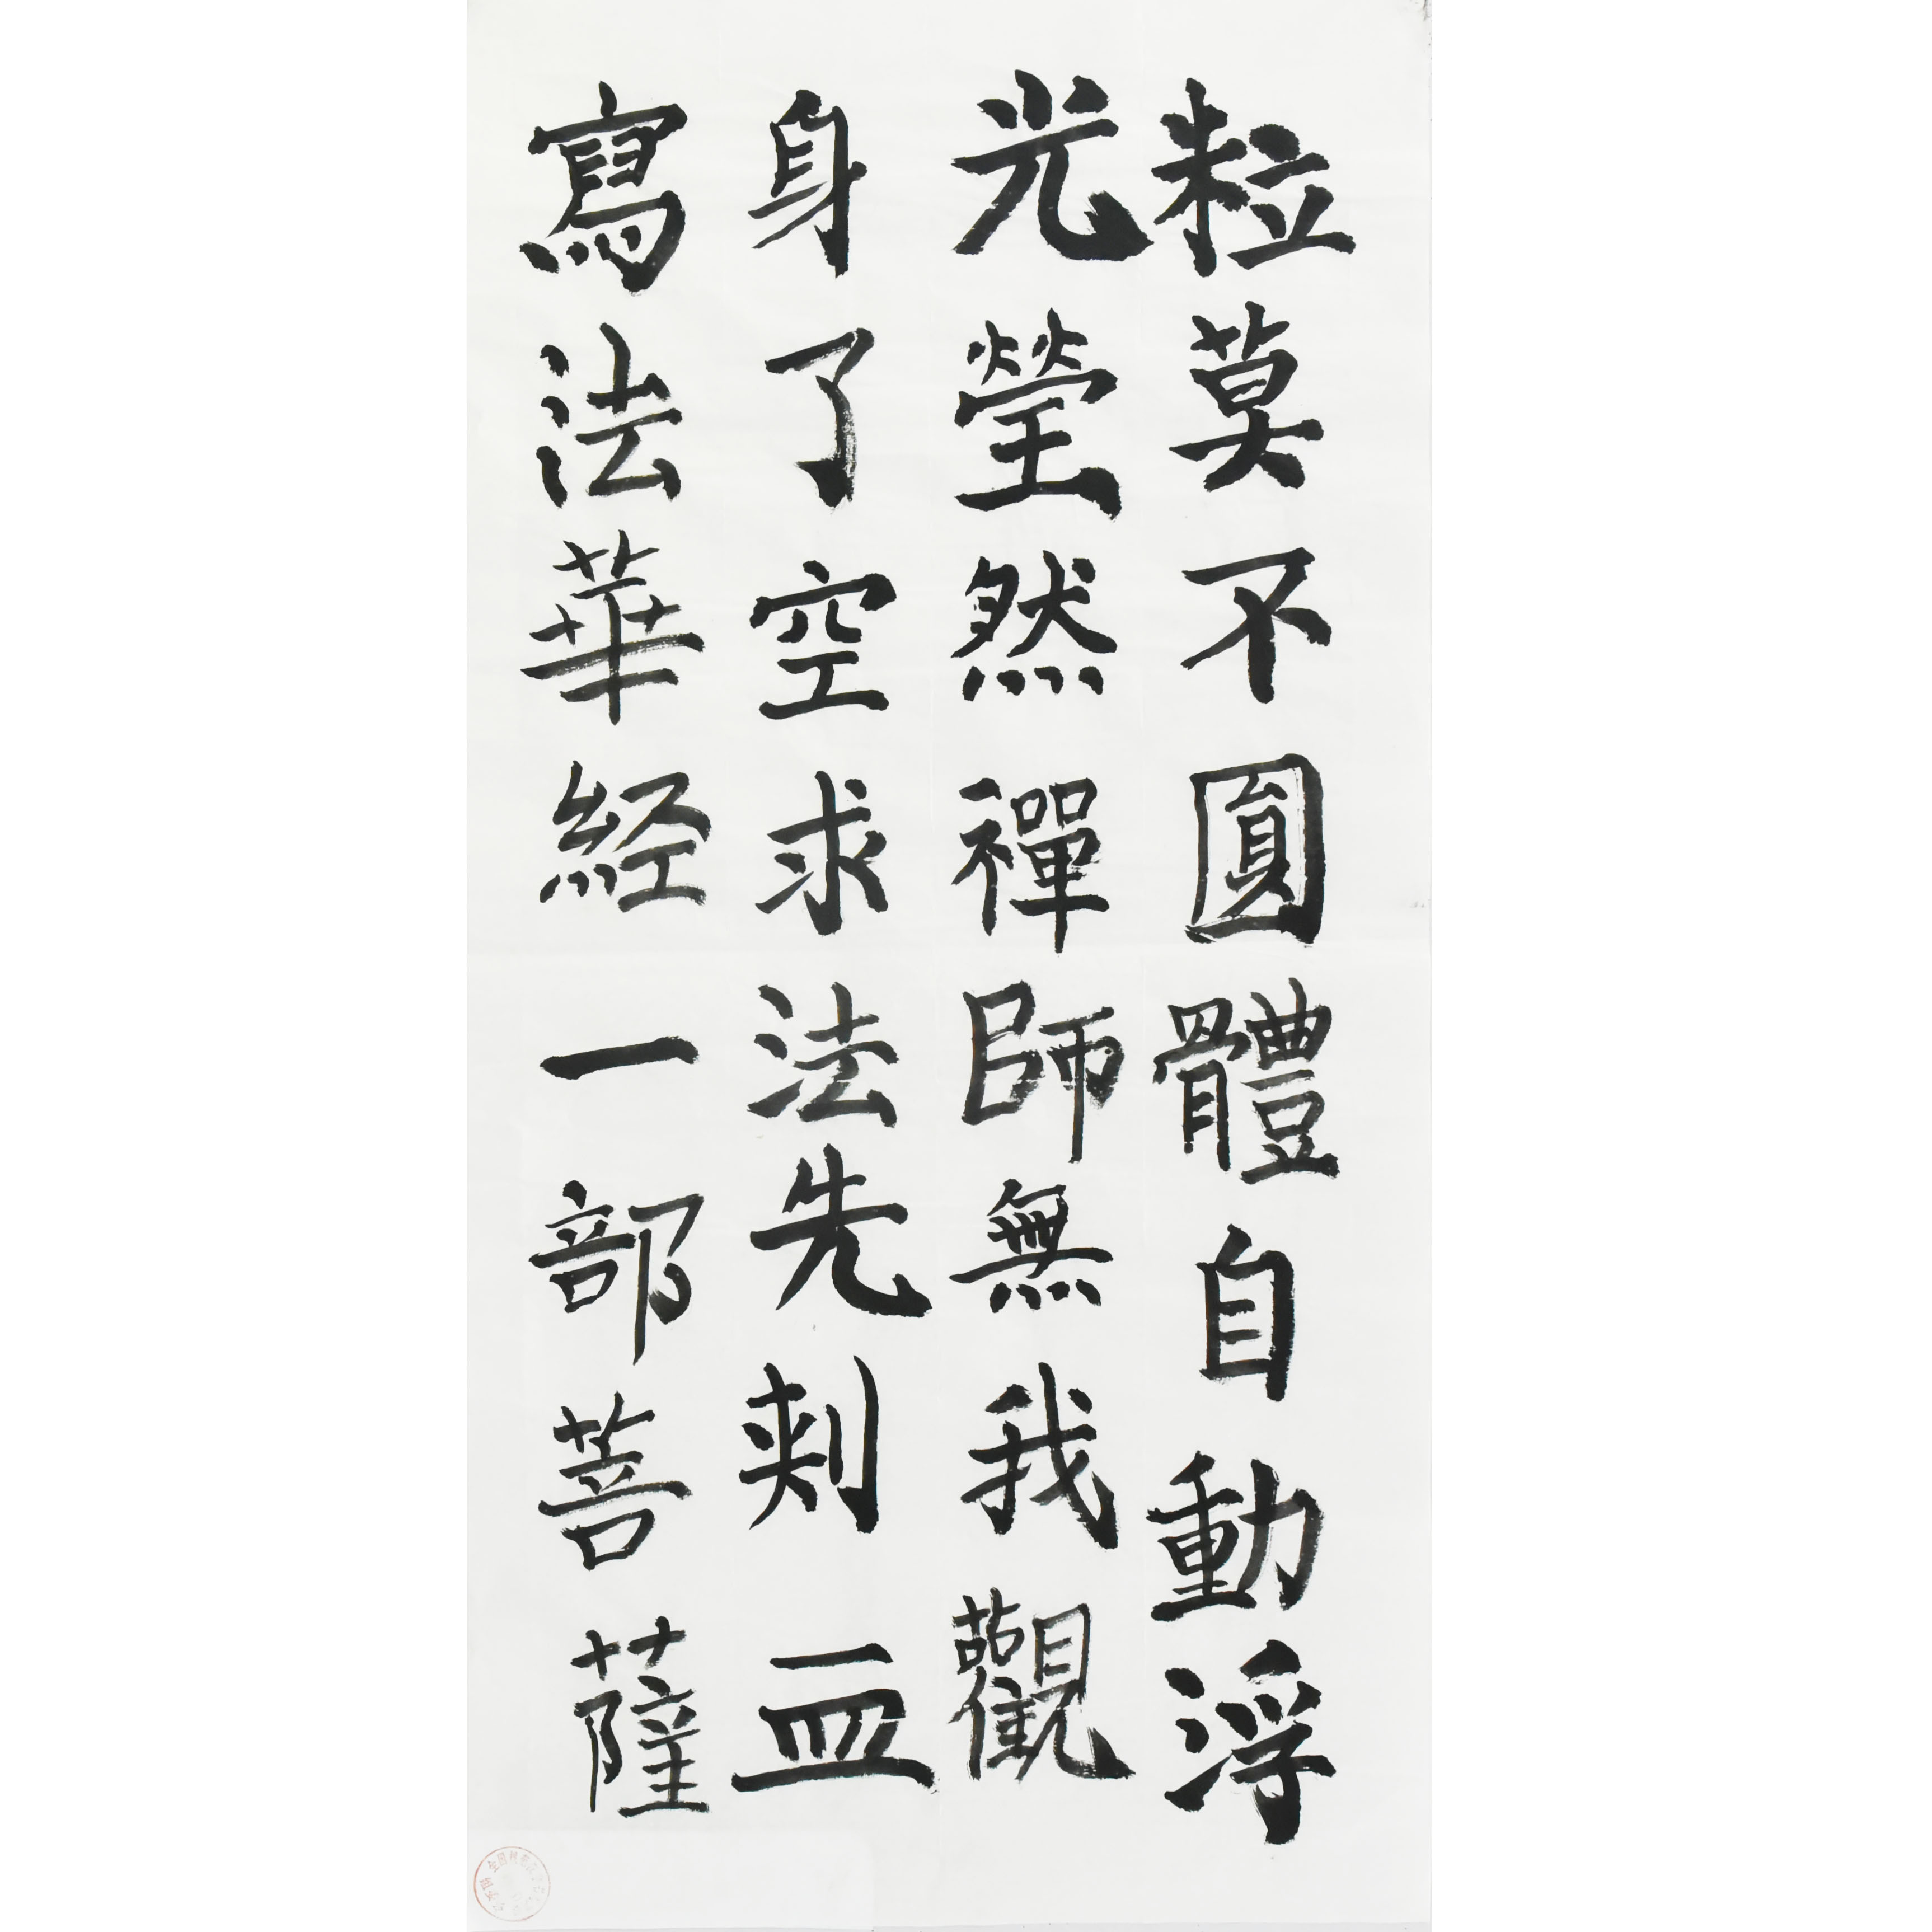 粒莫不圓體自動浮
光瑩然禪師無我觀
身了空求法先刺血
寫法華経一部菩薩